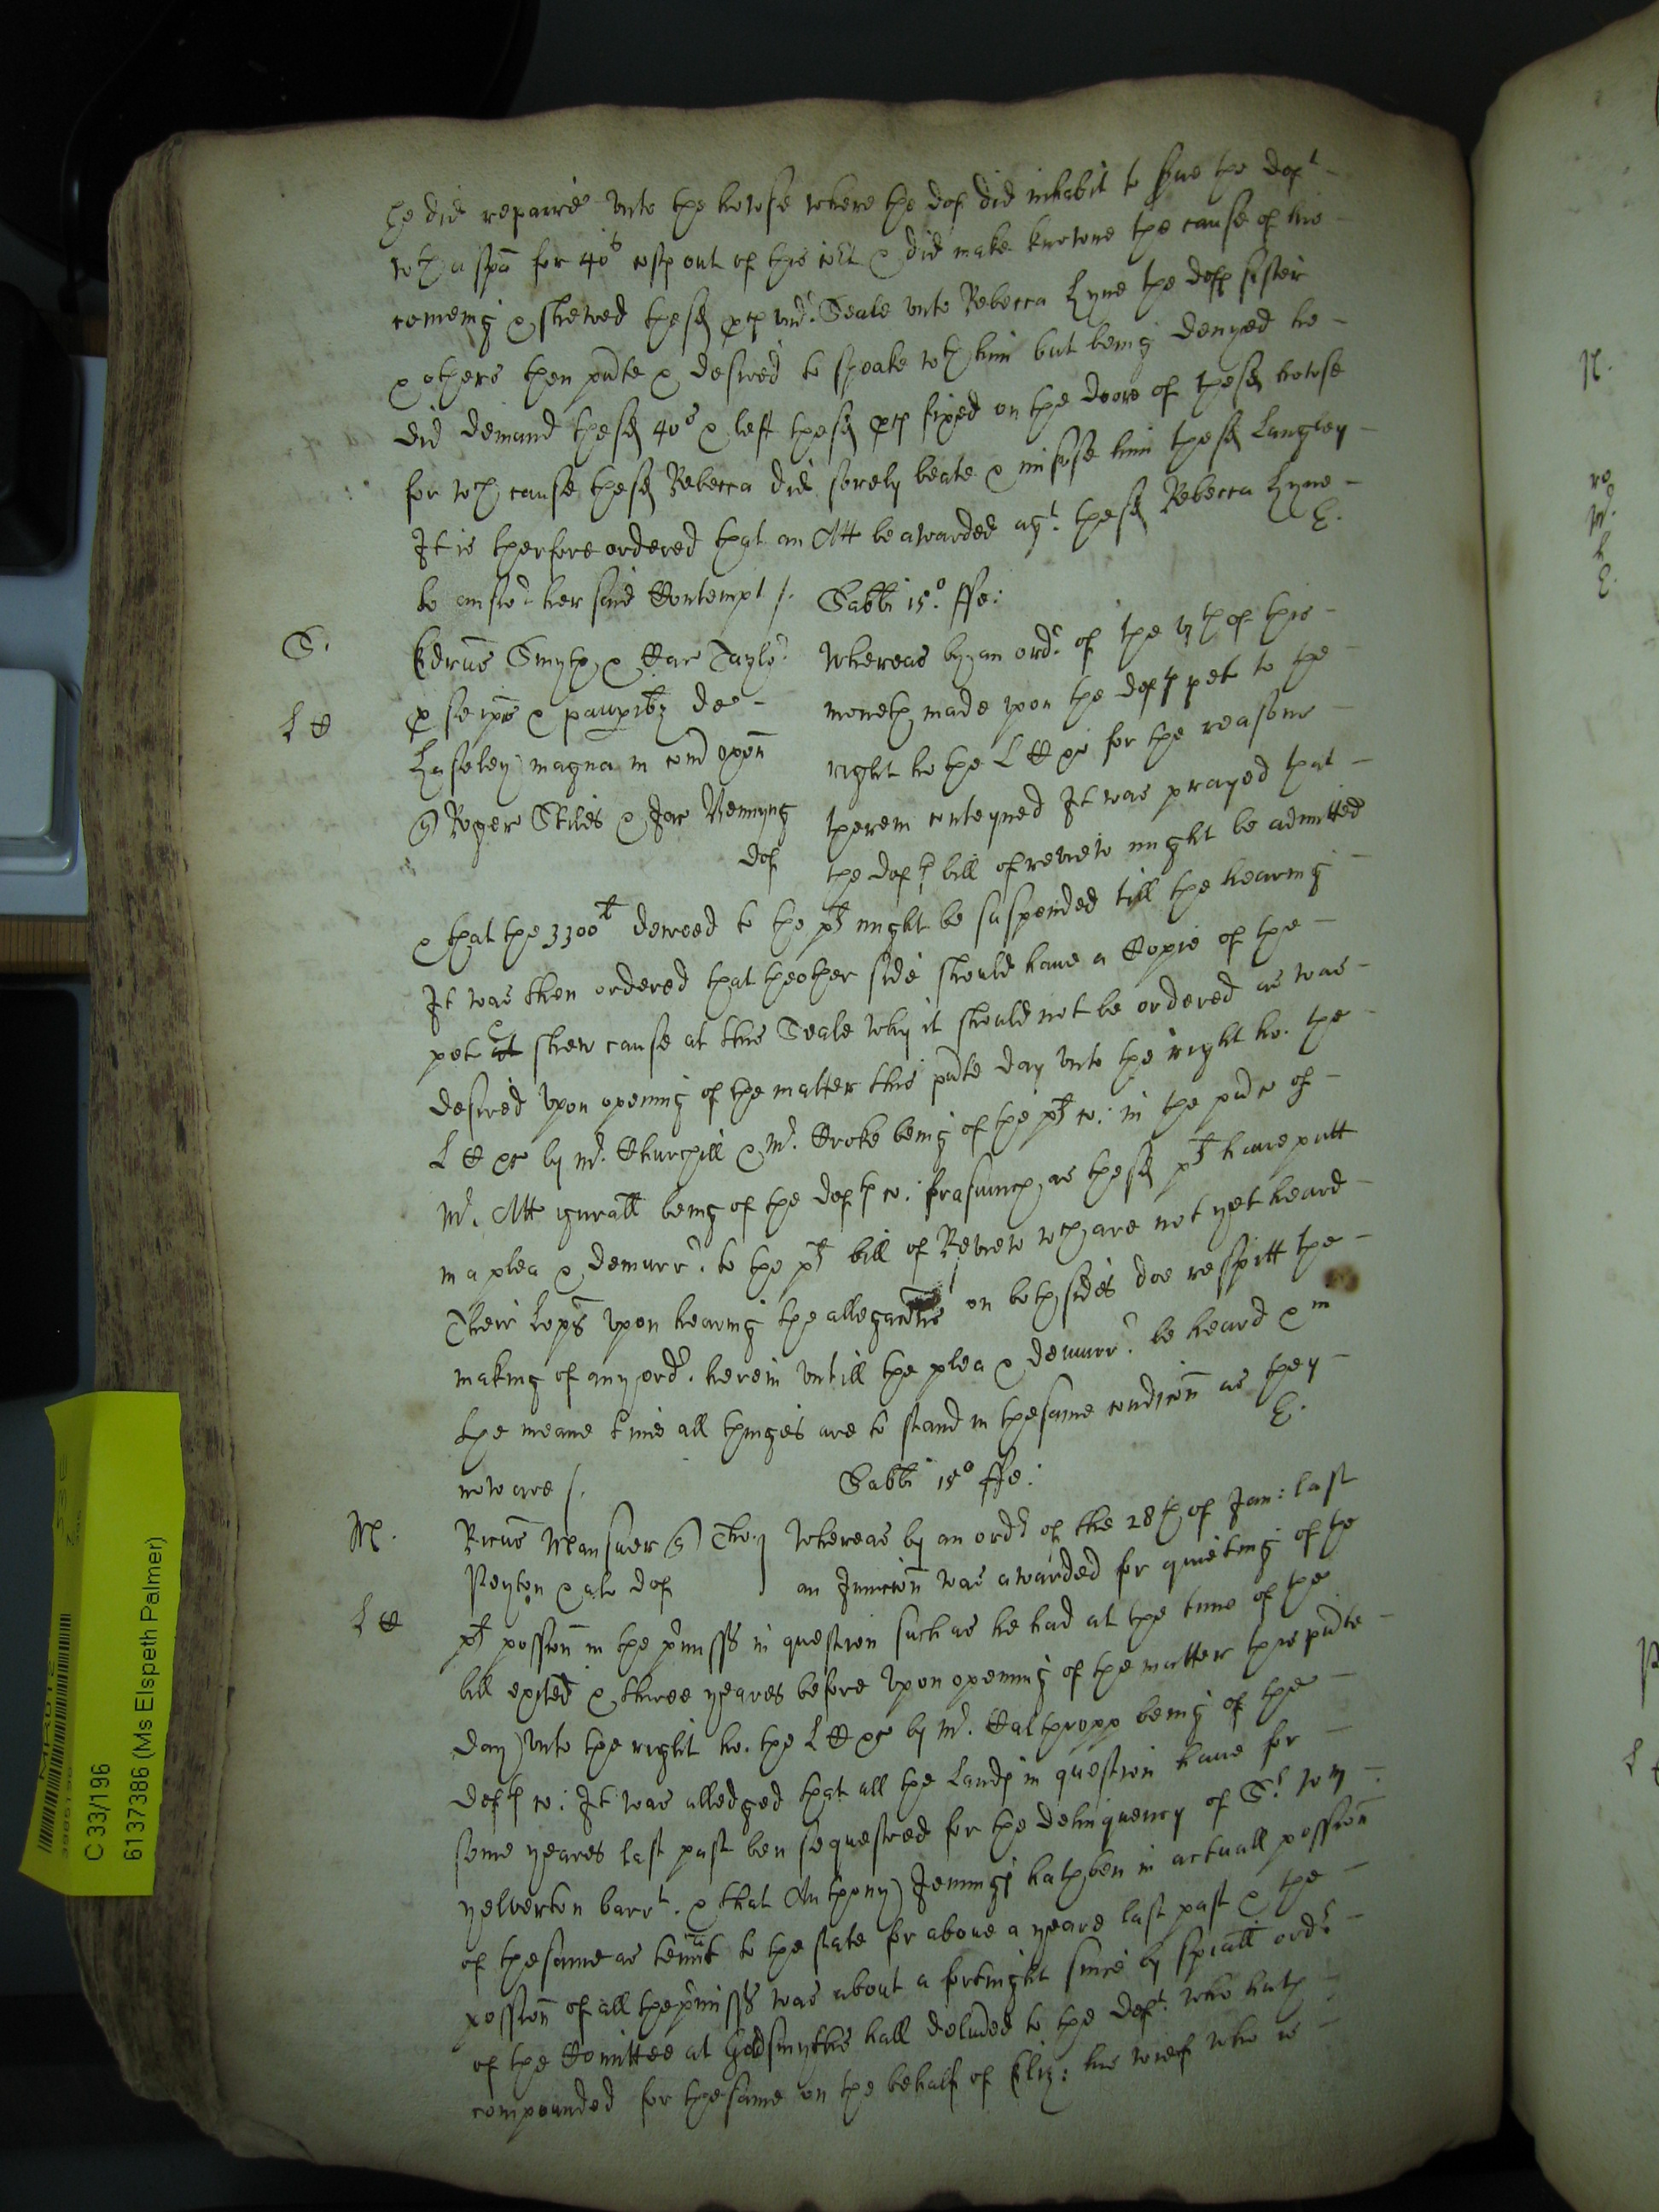 he did repaire unto the howse where the def did inhabit to serve the deft
wth a spa for 40s costs out of this Cort & did make knowne the cause of his
comeing & shewed the sd pcs undr Seale unto Rebecca Lyne the defts sister
& others then pnte & desired to speake wth him but being denyed he
did demand the sd 40s & left the sd pcs fixed on the doore of the sd howse
for wch cause the sd Rebecca did sorely beate & misuse him the sd Langley
It is therfore ordered that an Att be awarded agt the sd Rebecca Lyne
to answr her said Contempt /. E.
Sabbi 15o ffe:
S. Edrus Smyth & Taylor Whereas by an ordr of the of this
p se ipis & paupibz de moneth made upon the defts pet to the
L C magna in com Oxon right ho the L Cxs for the reasons
Roger Stiles & Jac therein conteyned It was prayed that
def the defts bill of review might be admitted
& that the 3300l decreed to the pts might be suspended till the hearing
It was then ordered that the other side should have a Copie of the
pet & shew cause at this Seale why it should not be ordered as was
desired upon opening of the matter this pnte day unto the right ho. the
L Cxs by Mr. Churchill & Mr. Croke being of the pts co: in the pnce of
Mr. Att genrall being of the defts co: forasmuch as the sd pts have putt
in a plea & demurrr to the pts bill of Review wch are not yet heard
Their Lopps upon hearing the allegacons on both sides doe respitt the
making of any ordr herein untill the plea & demurrr be heard & in
the meane time all thinges are to stand in the same condicon as they
now are /. E.
Sabbi 15o ffe:
M. Ricus Manser Tho: Whereas by an ordr of the 28th of Jan: last
Peyton & al def an Junccon was awarded for quieting of the
L C pts possion in the pmisss in question such as he had at the time of the
bill exited & three yeares before Upon opening of the matter this pnte
day unto the right ho. the L Cxs by Mr. Calthropp being of the
defts co: It was alledged that all the Lands in question have for
some yeares last past ben sequestred for the delinquency of Sr Wm
yelverton barrt. & that Anthony Jennings hath ben in actuall possion
of the same as tennt to the state for above a yeare last past & the
possion of all the pmisss was about a fortnight since by spiall ordr
of the Comittee at Goldsmythes hall delivred to the deft. who hath
compounded for the same on the behalf of Eliz: his wief who is
C 33/196
6137386 (Ms Elspeth Palmer)